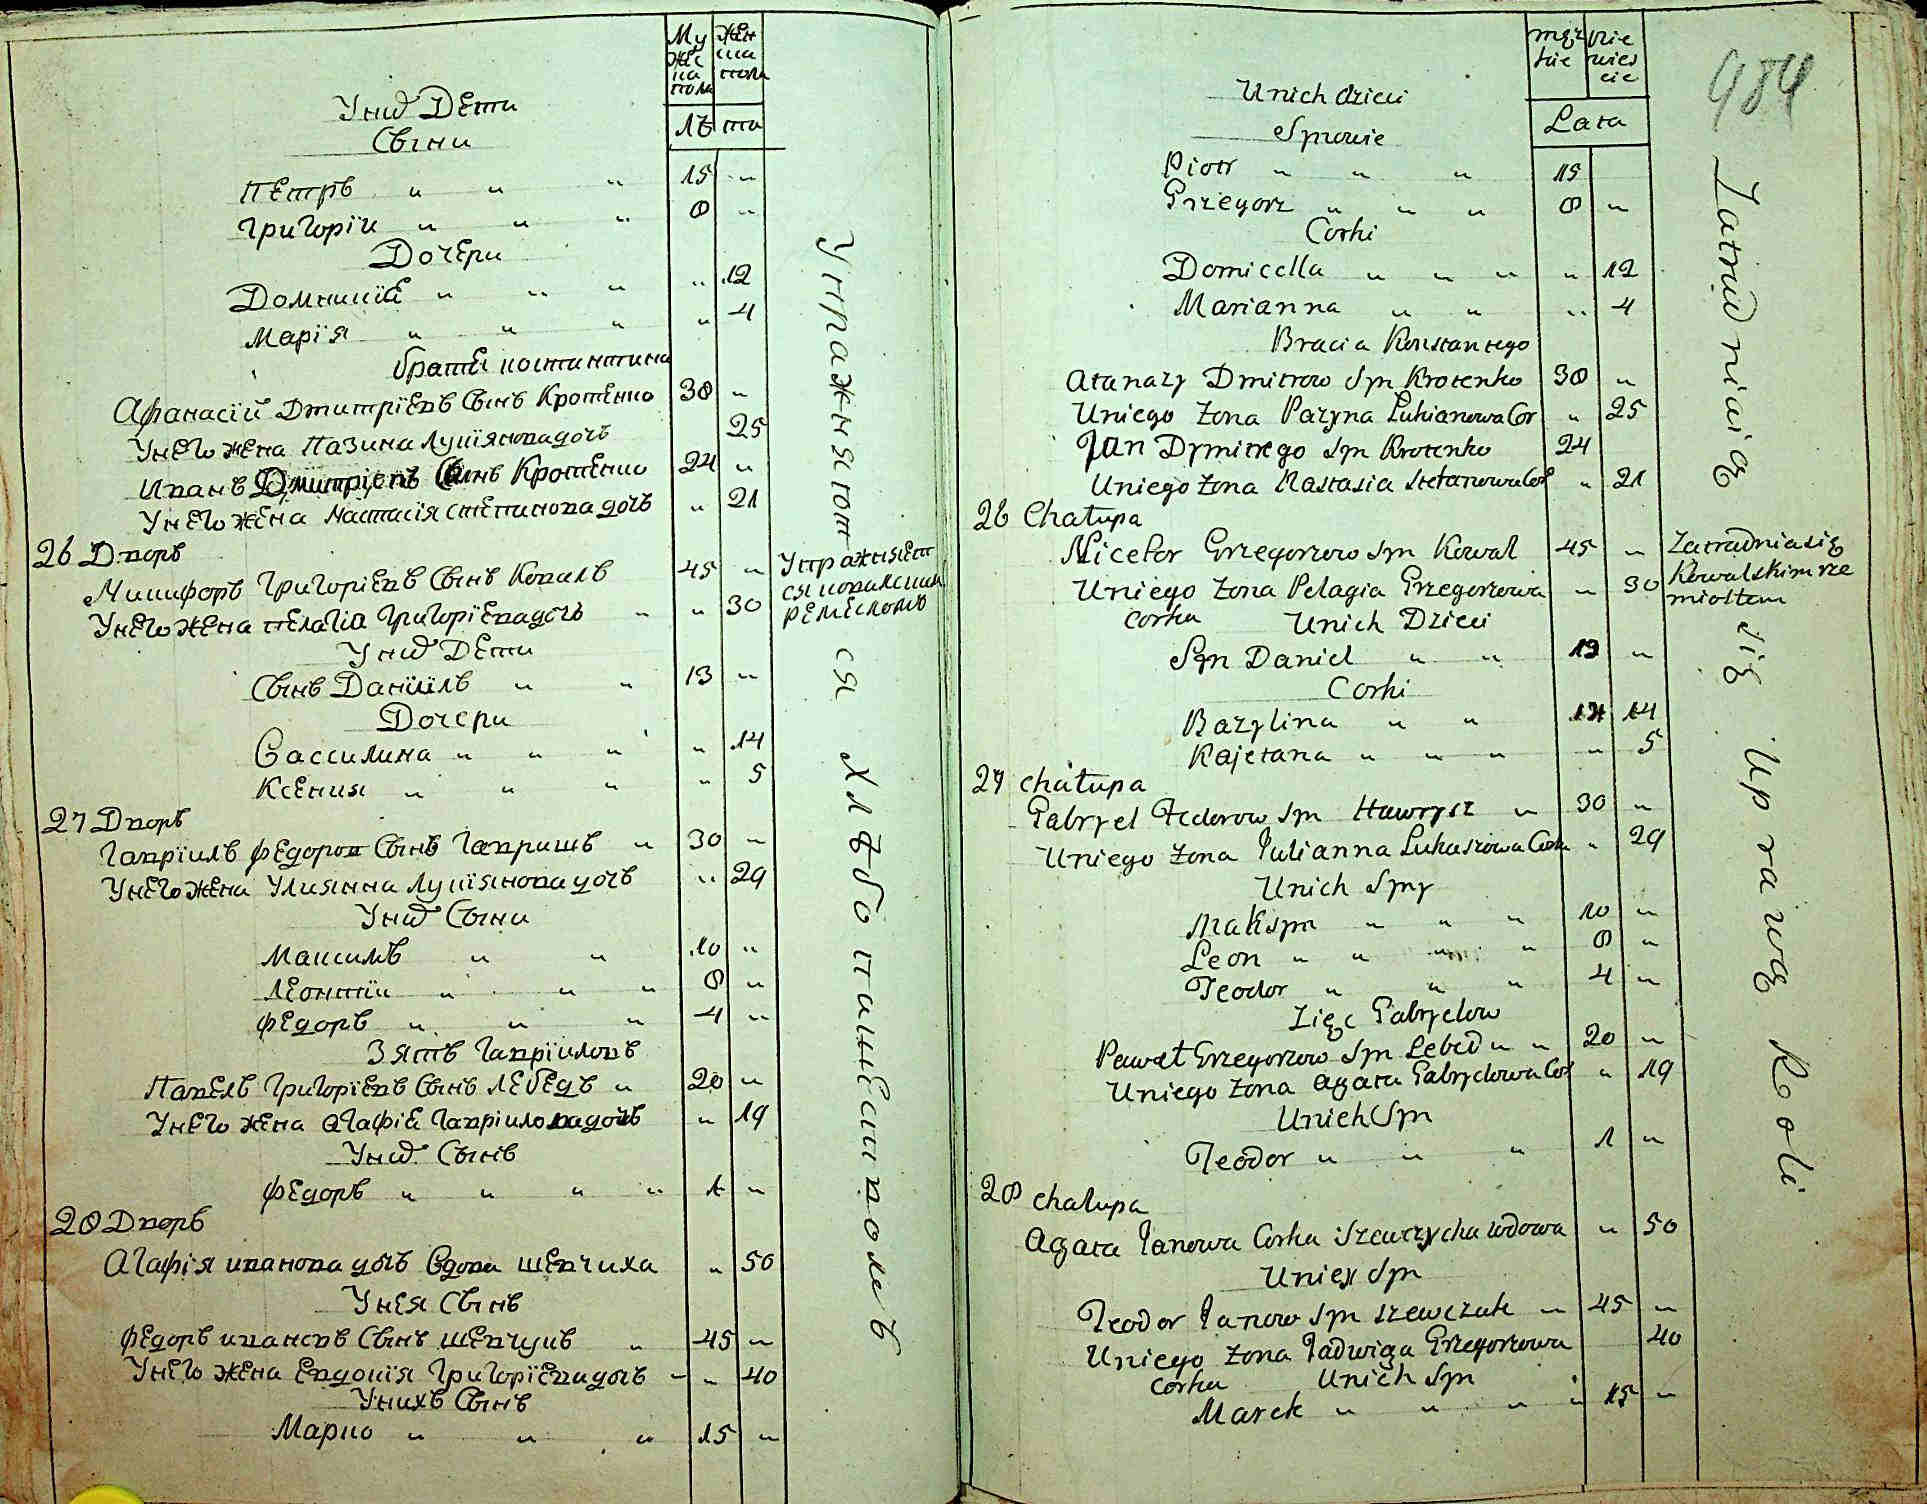 Му жес ка пола
жен ска пола
Лѣта
У них Дети
Сыни
Петръ " " " 15 "
Григорїи " " " 8 "
Дочери
Домникїа " " " " 12
Марїя " " " " 4
братя костантина
Афанасїй Дмитрїевъ Сынъ Кротенко 38 "
У него жена Пазина Лукїянова дочь 25
Иванъ Дмитрїевъ Сынъ Кротенко 24 "
У него жена Настасїя степанова дочь " 21
26 Дворъ
Микифоръ Григорїевъ Сынъ Коваль 45 "
У него жена пелагїа Григорїева дочь " " 30
Упражняет ся ковалским ремесломъ
У них Дети
Сынъ Данїилъ " " 13 "
Дочери
Вассилина " " " " 14
Ксения " " " " 5
27 Дворъ
Гаврїилъ федоров Сынъ Гавришъ " 30 "
У него жена Улиянна Лукїянова дочь " 29
У них Сыни
Максимъ " " 10 "
Леонтїи " " " 8 "
федоръ " " " 4 "
Зять Гаврїиловъ
Павелъ Григорїевъ Сынъ Лебедъ " 20 "
У него жена агафїа Гаврїилова дочь " 19
У них Сынъ
федоръ " " " " 1 "
28 Дворъ
Агафїя иванова дочь Вдова шевчиха " 50
У нея Сынъ
федоръ ивановъ Сынъ шевчукъ " 45 "
У него жена Евдокїя Григорїева дочь " " 40
У нихъ Сынъ
Марко " " " 15 "
Упражняют ся хлѣбопашескИ полевъ
męz kie
nie wies cie
Lata
984
U nich dzieci
Synowie
Piotr " " " 15
Grzegorz " " " 8 "
Corki
Domicella " " " " 12
Marianna " " " 4
Bracia Konstantego
Atanazy Dmitrow Syn Krotenko 38 "
U niego Zona Pazyna Lukianowa Cor " 25
Jan Dymitrego Syn Krotenko 24
U niego Zona Nastasia Stefanowa Cor " 21
26 Chałupa
Nicefor Grzegorzow Syn Kowal 45 "
U niego Zona Pelagia Grzegorzowa " 30
Corka
Zatrudnia się Kowalskim rze miosłem
U nich Dzieci
Syn Daniel " " 13 "
Corki
Bazylina " " 14
Kajetana " " " " 5
27 chałupa
Gabryel Fedorow Syn Hawrysz " 30 "
U niego Zona Julianna Lukaszowa Corka " 29
U nich Syny
Maksym " " " 10 "
Leon " " " " 8 "
Teodor " " " 4 "
Zięc Gabryelow
Paweł Grzegorzow Syn Lebed " " 20 "
U niego Zona agata Gabryelowa Cor " 19
U nich Syn
Teodor " " " 1 "
28 chałupa
Agata Janowa Corka Szewczycha wdowa " 50
U niey Syn
Teodor Janow Syn Szewczuk " 45 "
U niego Zona Jadwiga Grzegorzowa 40
Corka U nich Syn
Marek " " " " 15 "
Zatrudniaią się Uprawą Roli